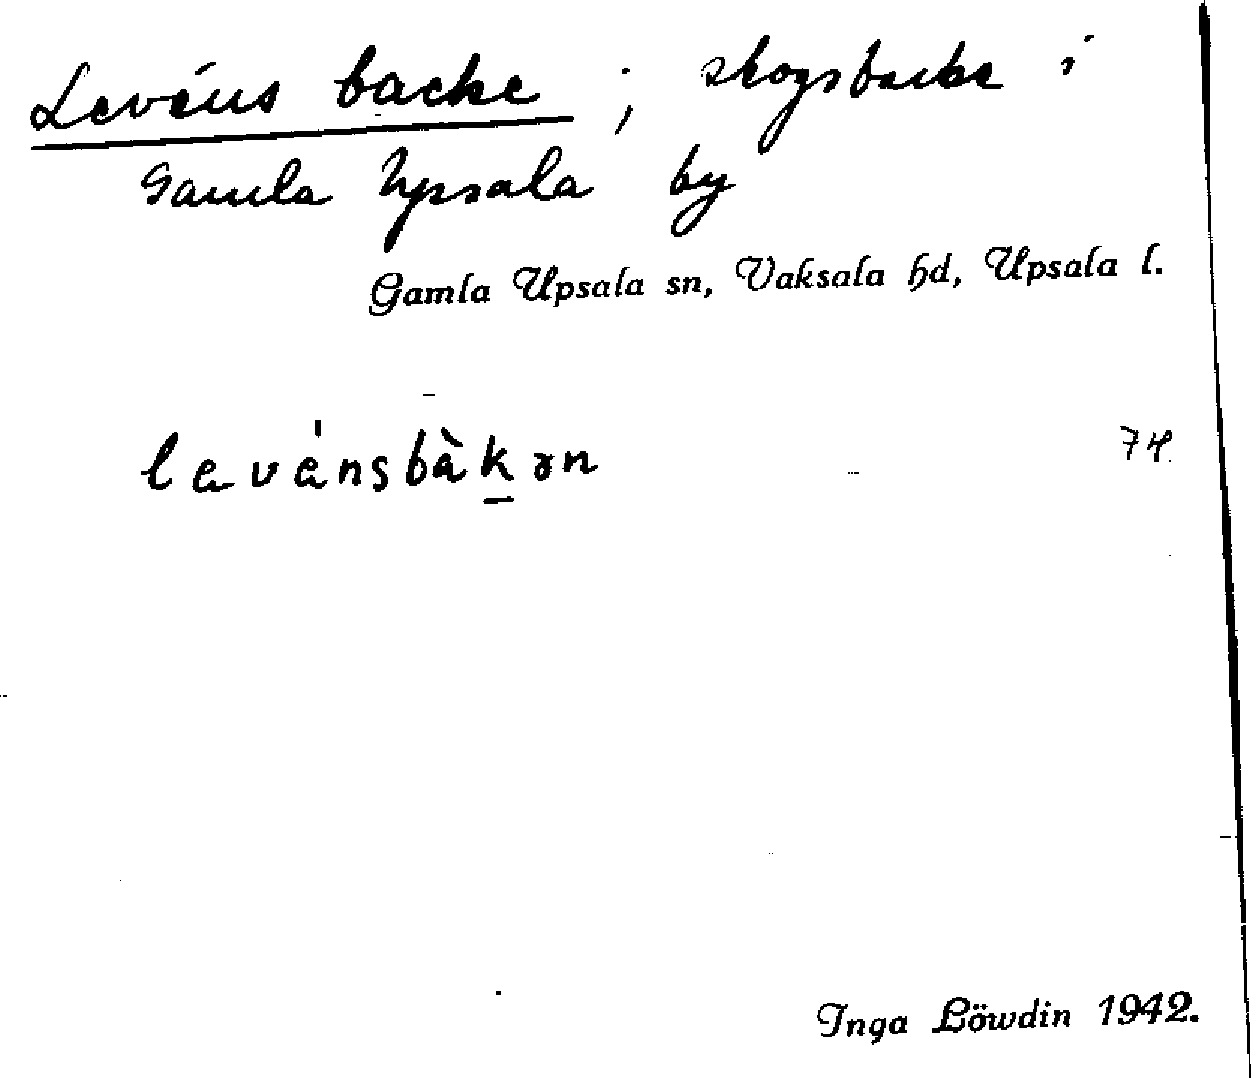 Levéns backe ; skogsbacke i
Gamla Upsala by
Gamla Upsala sn, Vaksala hd, Upsala l.
levénsbàkən
Inga Löwdin 1942.